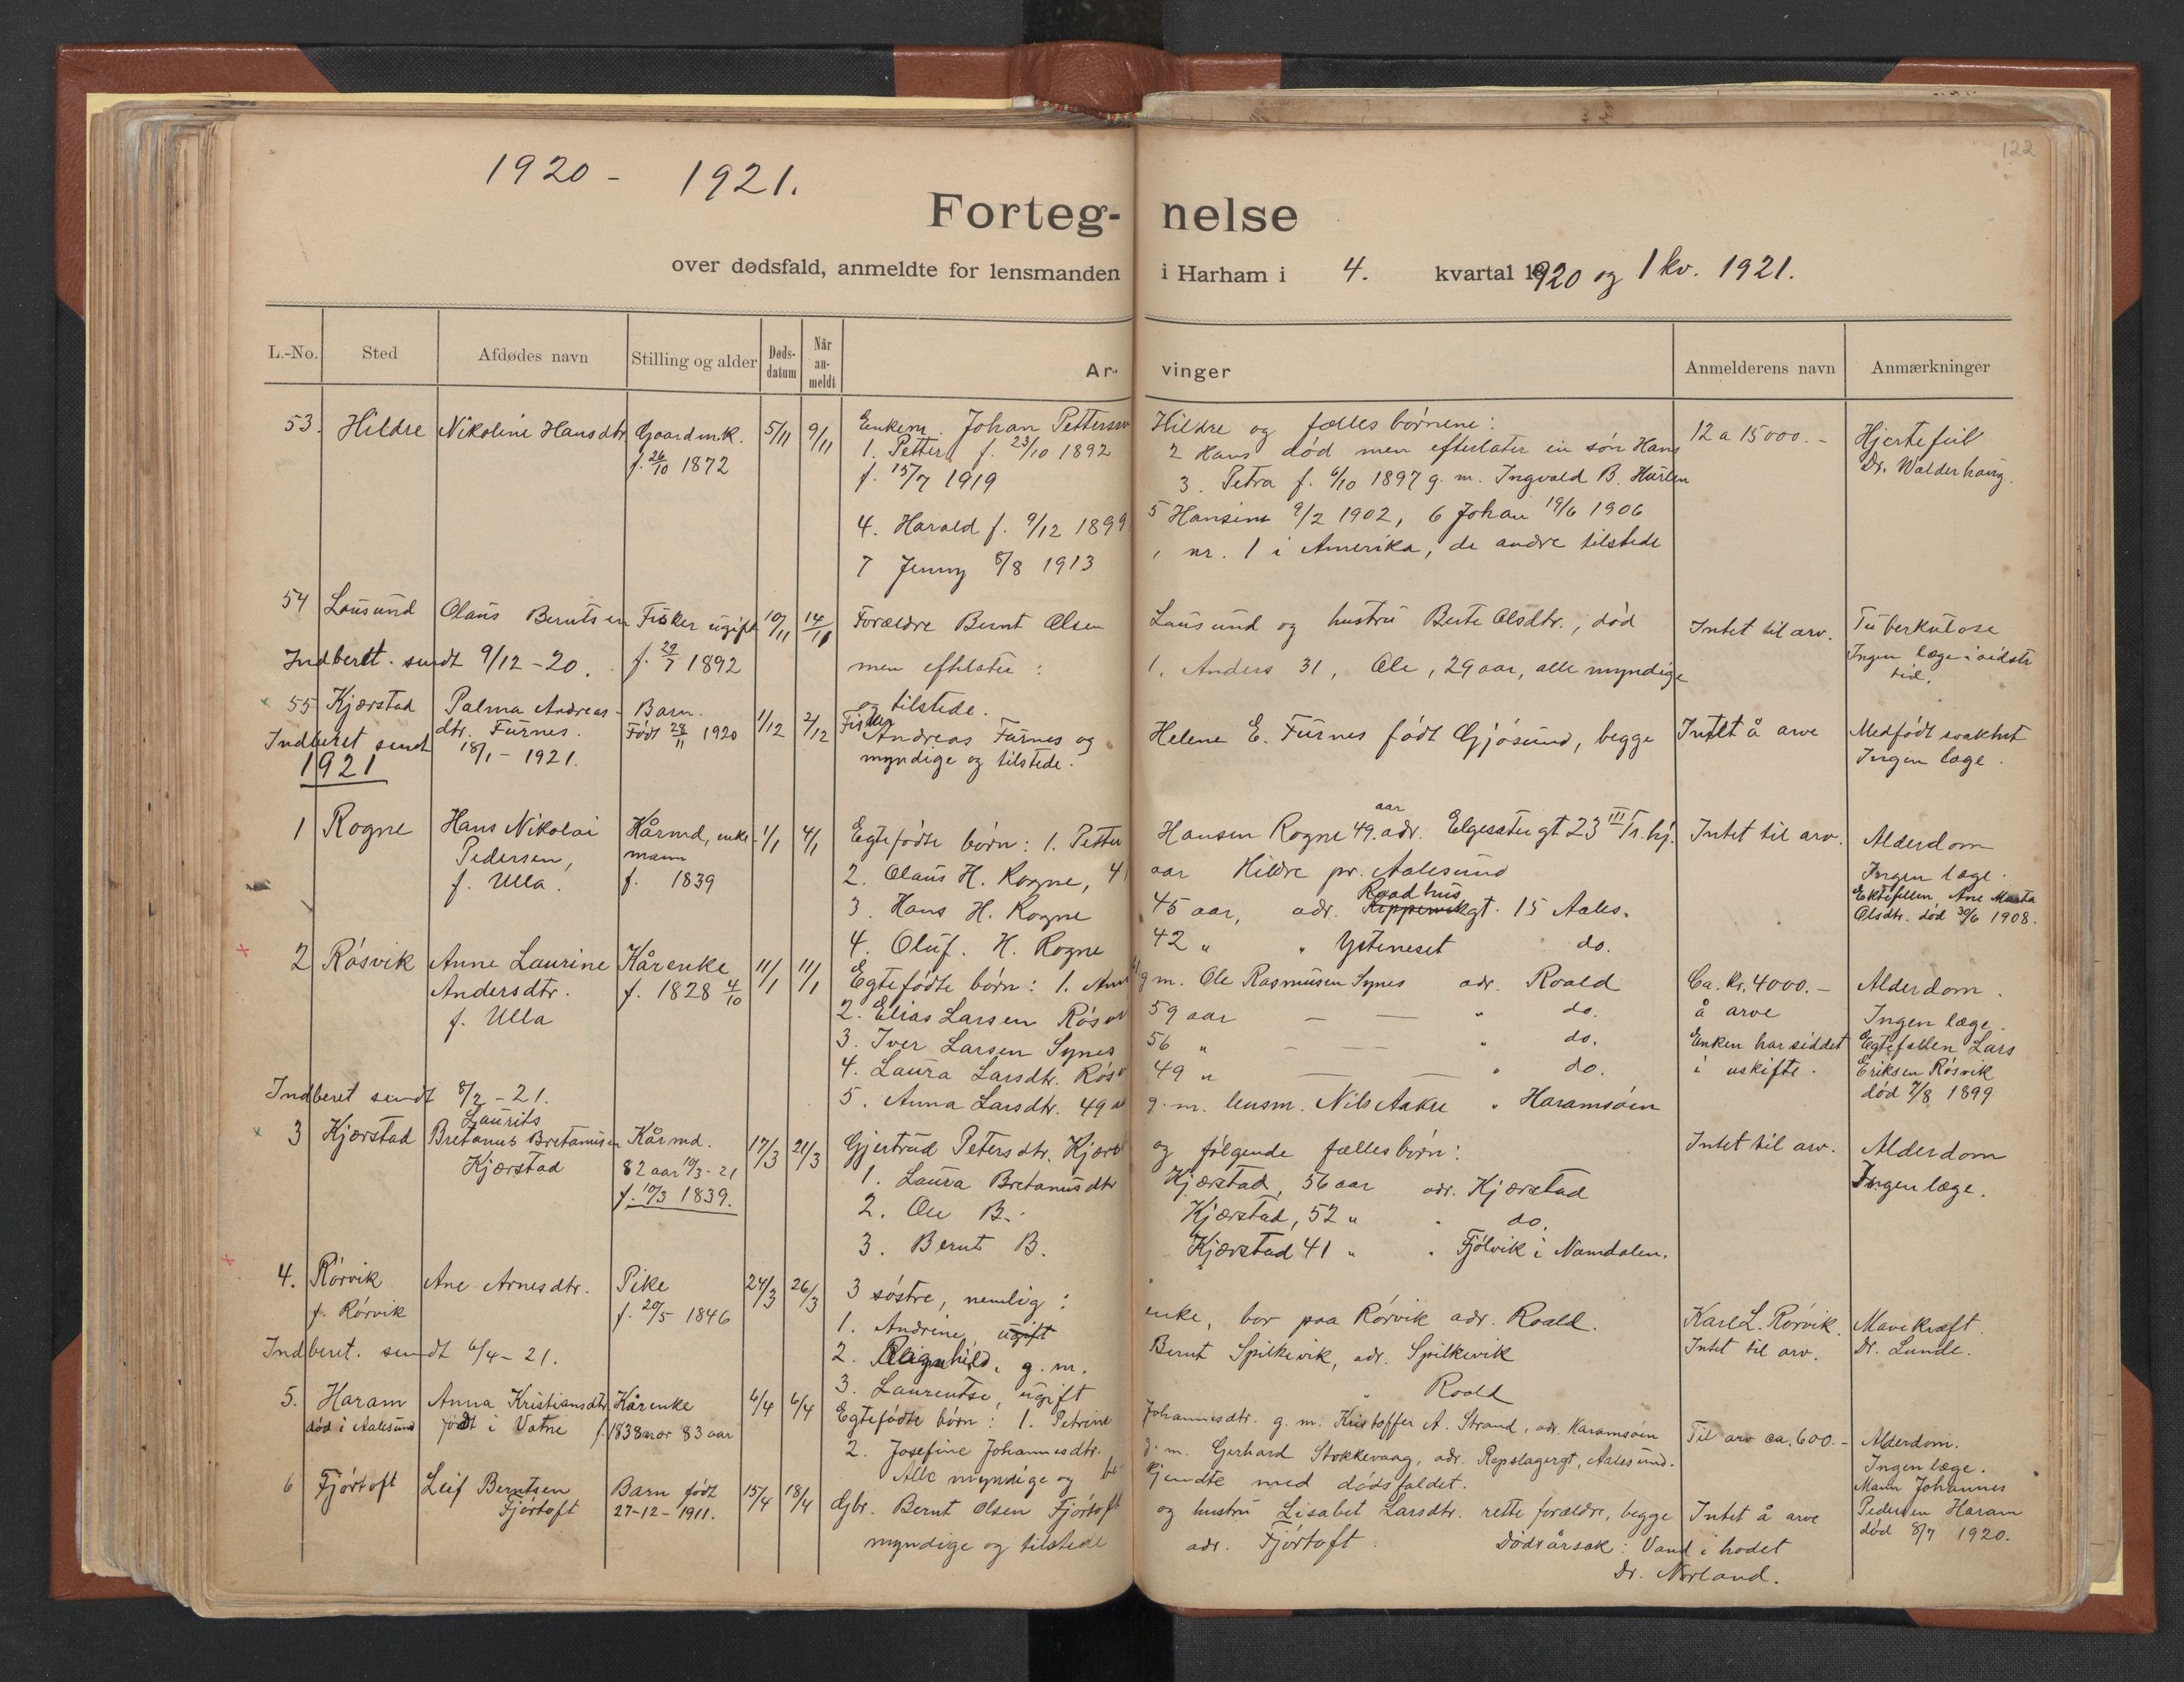 122
1920 - 1921.
Forteg- nelse
over dødsfald, anmeldte for lensmanden i Harham i 4. kvartal 1920 og 1 kv. 1921.
L.-No. Sted Afdødes navn Stilling og alder Døds-datum Når an-meldt Ar- vinger Anmelderens navn Anmærkninger
53. Hildre Nikoline Hansdtr Gaardmk. 5/11 9/11 Enkem. Johan Petterssen Hildre og fælles børnene: 12 a 15000.- Hjertefeil
f. 26/10 1872 1. Petter f. 23/10 1892 2 Hans død men efterlater en søn Hans Dr. Walderhaug.
f. 15/7 1919 3. Petra f. 6/10 1897 g. m. Ingvald B. Hurlen
4. Harald f. 9/12 1899 5 Hansine 9/2 1902, 6 Johan 19/6 1906
7 Jenny 8/8 1913, nr. 1 i Amerika, de andre tilstede
54 Lausund Olaus Berntsen Fisker ugift 10/11 14/11 Forældre Bernt Olsen Lausund og hustru Berte Olsdtr., død Intet til arv. Tuberkulose
Indberet. sendt 9/12-20. f. 29/7 1892 men efterlater: 1. Anders 31, Ole, 29 aar, alle myndige Ingen læge i sidste
og tilstede. tid.
55 Kjærstad Palma Andreas- Barn. 1/12 2/12 Fisker Andreas Furnes og Helene E. Furnes født Gjøsund, begge Intet å arve Medfødt svakhet
Indberet sendt dtr. Furnes. Født 28/11 1920 myndige og tilstede. Ingen læge.
18/1-1921.
1921
1 Rogne Hans Nikolai Kårmd, enke- 1/1 4/1 Egtefødte børn: 1. Petter Hansen Rogne 49 aar adr. Elgesætergt 23 III Tr.hj. Intet til arv. Alderdom
Pedersen, mann 2. Olaus H. Rogne, 4 aar Hildre pr. Aalesund Ingen læge.
f. Ulla. f. 1839 3. Hans H. Rogne 45 aar, adr. Raadhusgt. 15 Aales. Ektefellen, Ane Marta
4. Oluf. H. Rogne 42 " " Ysteneset do. Olsdtr. død 30/6 1908.
2 Røsvik Anne Laurine Kårenke 11/1 11/1 Egtefødte børn: 1. g m. Ole Rasmusen Synes adr. Roald Ca. Kr. 4000.- Alderdom.
Andersdtr. f. 1828 4/10 2. Elias Larsen Røsvik 59 aar — — " do. å arve Ingen læge.
f. Ulla 3. Iver Larsen Synes 56 " — — " do. Enken har siddet Egtefællen Lars
4. Laura Larsdtr. Røsv 49 " — — " do. i uskifte. Eriksen Røsvik
Indberet sendt 8/2-21. 5. Anna Larsdtr. 49 g. m. lensm. Nils Aakre " Haramsøen død 7/8 1899
3 Kjærstad Laurits Bretanus Bretanusen Kårmd. 17/3 21/3 Gjertrud Petersdtr. Kjærst og følgende fællesbørn: Intet til arv. Alderdom
Kjærstad 82 aar 10/3-21 1. Laura Bretanusdtr Kjærstad, 56 aar adr. Kjærstad Ingen læge.
f. 10/3 1839. 2. Ole B. Kjærstad, 52 " " do.
3. Bernt B. Kjærstad 41 " " Fjølvik i Namdalen.
4. Rørvik Ane Arnesdtr. Pike 24/3 26/3 3 søstre, nemlig:
f. Rørvik f. 20/5 1846 1. Andrine, ugift enke, bor paa Rørvik adr. Roald. Karl L. Rørvik. Mavekræft.
Indberet. sendt 6/4-21. 2. Ragnhild. g. m. Bernt Spilkevik, adr. Spilkevik Intet til arv. Dr. Lunde.
3. Laurentse, ugift " Roald
5. Haram Anna Kristiansdtr Kårenke 6/4 6/4 Egtefødte børn: 1. Petrine Johannesdtr. g. m. Kristoffer A. Strand, adr. Haramsøen Til arv ca. 600.- Alderdom.
død i Aalesund født i Vatne f. 1838 nær 83 aar 2. Josefine Johannesdtr. g. m. Gerhard Stokkevaag, adr. Repslagergt, Aalesund. Ingen læge.
Alle myndige og be- kjendte med dødsfaldet. Mann Johannes
6 Fjørtoft Leif Berntsen Barn født 15/4 18/4 Gbr. Bernt Olsen Fjørtoft og hustru Lisabet Larsdtr. rette forældre, begge Intet å arve Pedersen Haram
Fjørtoft 27-12-1911. myndige og tilstede adr. Fjørtoft. Dødsårsak: Vand i hodet død 8/7 1920.
Dr. Nørland.